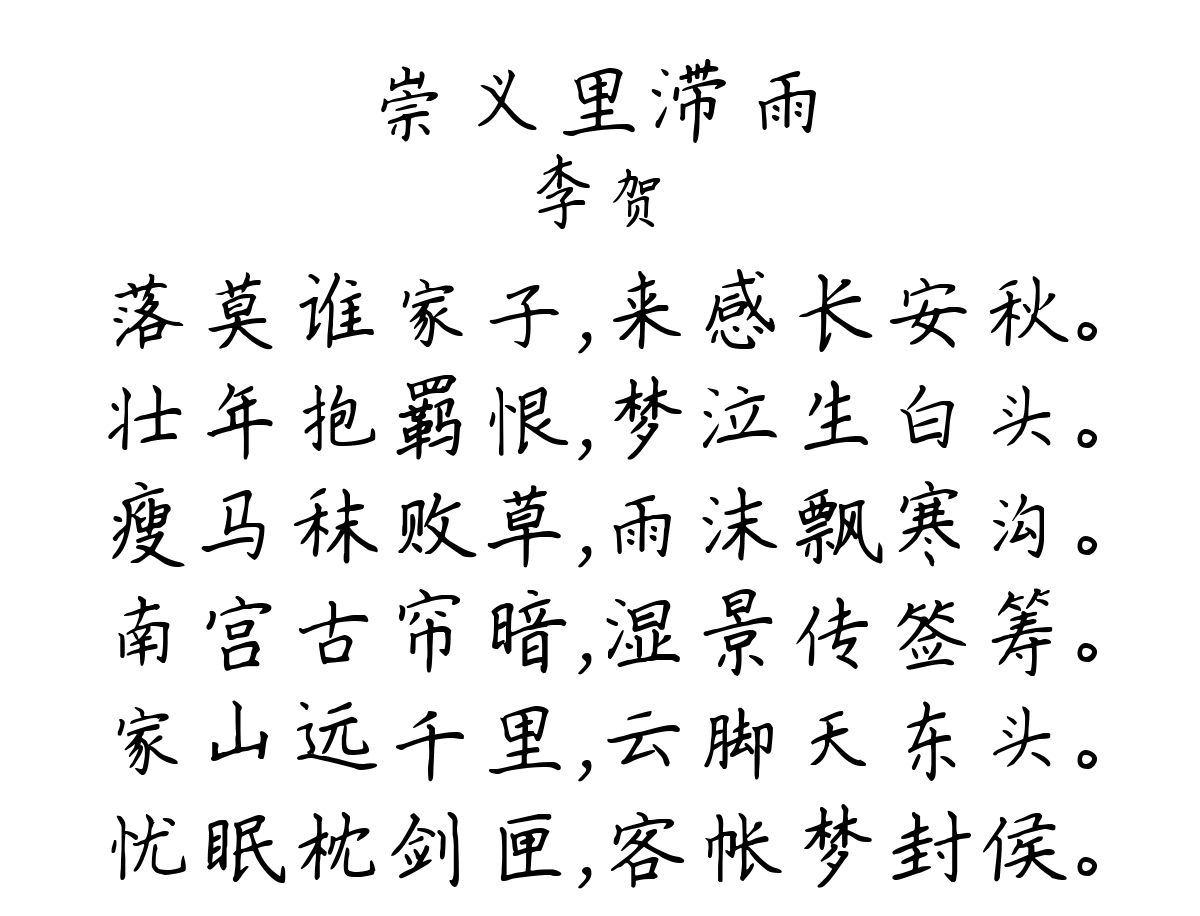 崇义里滞雨
李贺
落莫谁家子,来感长安秋。
壮年抱羁恨,梦泣生白头。
瘦马秣败草,雨沫飘寒沟。
南宫古帘暗,湿景传签筹。
家山远千里,云脚天东头。
忧眠枕剑匣,客帐梦封侯。